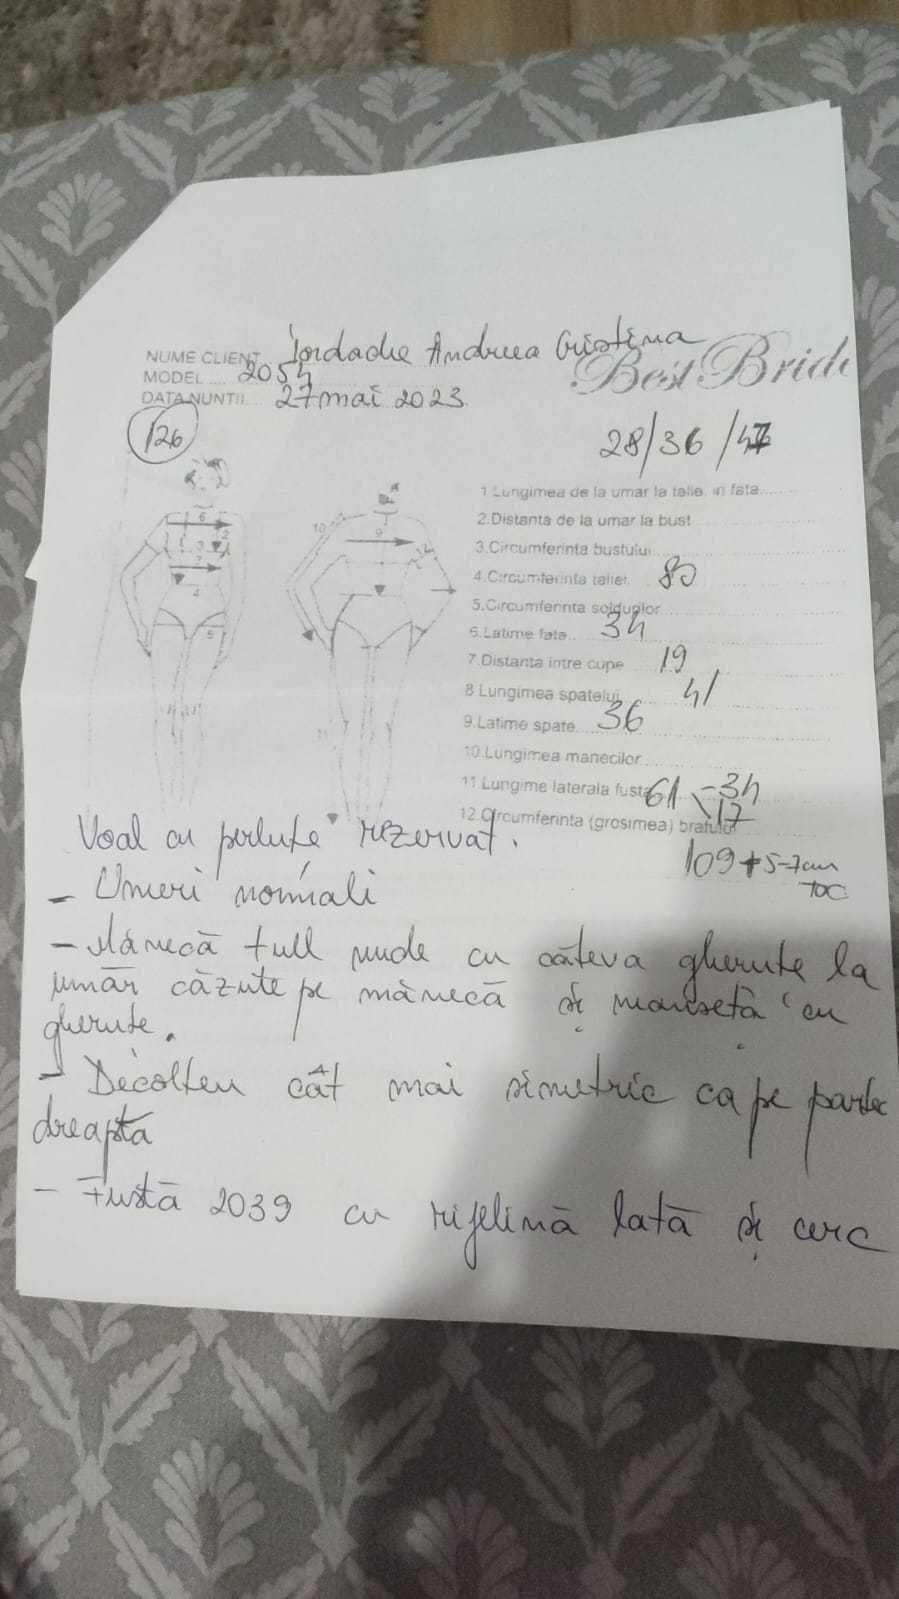 NUME CLIENT Iordache Andreea Cristina
Best Bride
MODEL .... 2054
DATA NUNTII... 27 mai 2023
126
28/36/47
1.Lungimea de la umar la talie, in fata.....
2.Distanta de la umar la bust
3.Circumferinta bustului
4.Circumferinta taliei. 80
5.Circumferinta soldurilor
6.Latime fata... 34
7.Distanta intre cupe 19
8.Lungimea spatelui 41
9.Latime spate... 36
10.Lungimea manecilor
11.Lungime laterala fusta 61 - 34
17
12.Circumferinta (grosimea) bratului
109 + 5-7cm
TOC
Voal cu perluțe rezervat.
- Umeri normali
- Mânecă tull nude cu câteva gherute la
umăr căzute pe mânecă și manșetă cu
gherute.
- Decolteu cât mai simetric ca pe partea
dreapta
- Fustă 2039 cu rijelină lată și cerc